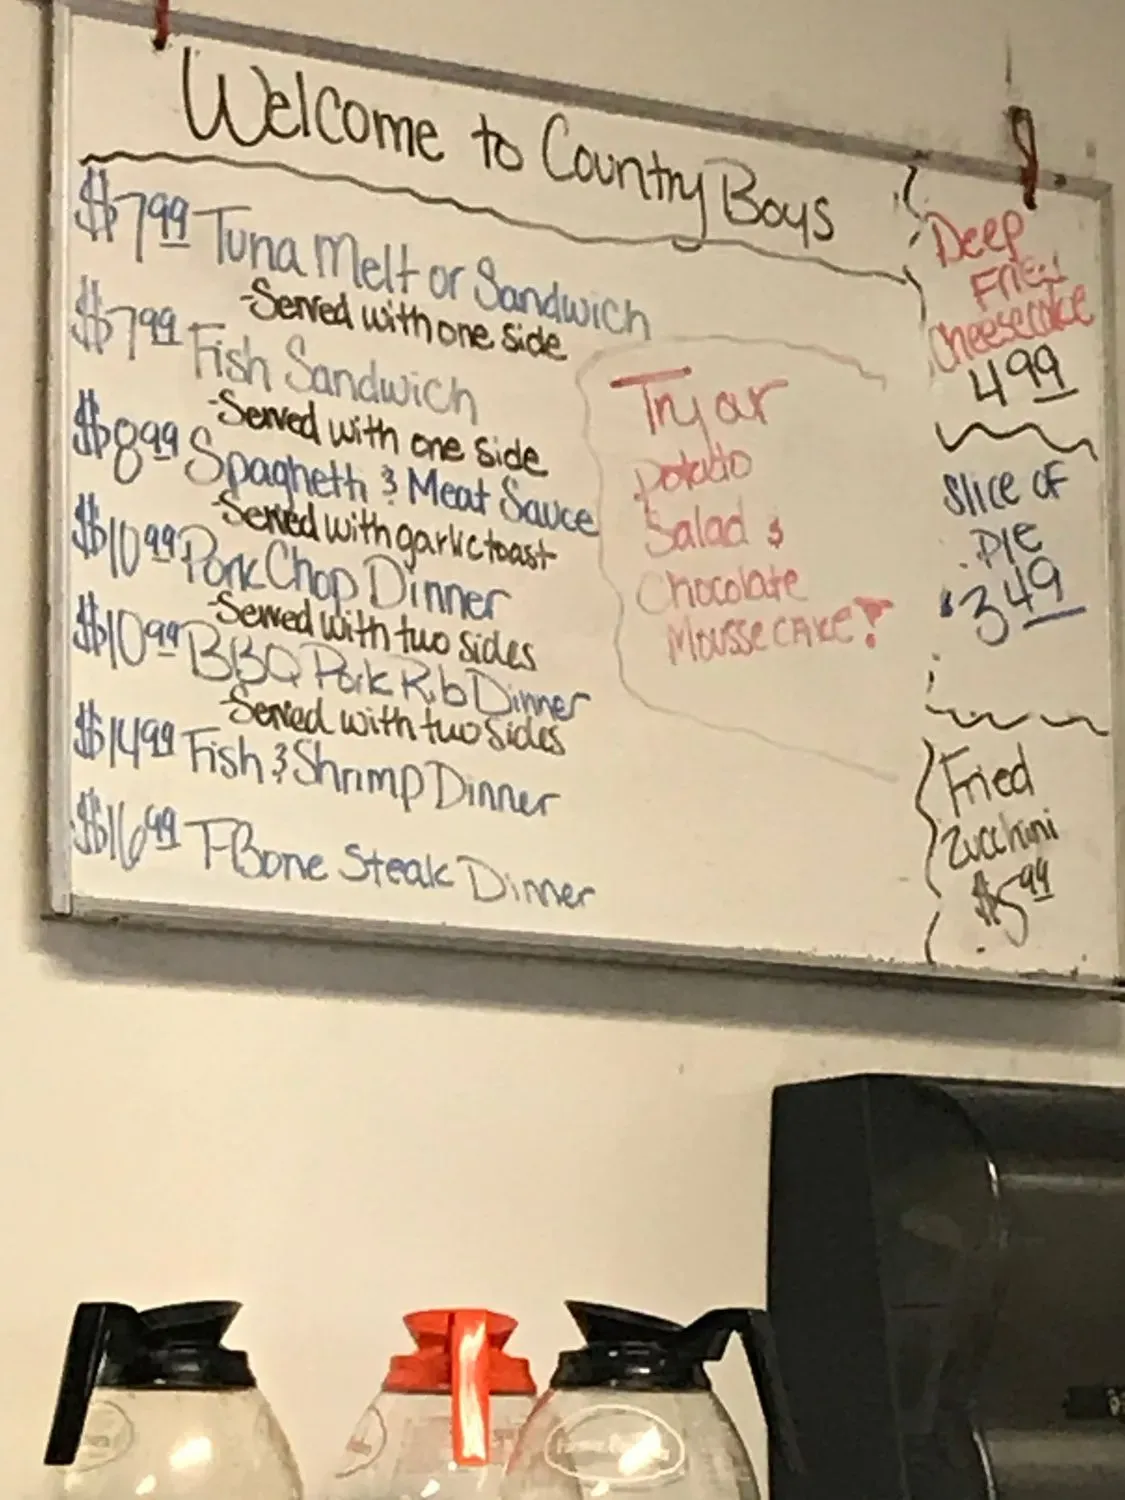 Welcome to Country Boys
$7.99 Tuna Melt or Sandwich
-Served with one side
$7.99 Fish Sandwich
-Served with one side
$8.99 Spaghetti & Meat Sauce
-Served with garlic toast
$10.99 Pork Chop Dinner
-Served with two sides
$10.99 BBQ Pork Rib Dinner
-Served with two sides
$14.99 Fish & Shrimp Dinner
$16.99 T-Bone Steak Dinner
Try our
potato
Salad &
Chocolate
Mousse CAKE!
Deep
Fried
Cheesecake
4 99
Slice of
Pie
$3 49
Fried
Zucchini
$5 99